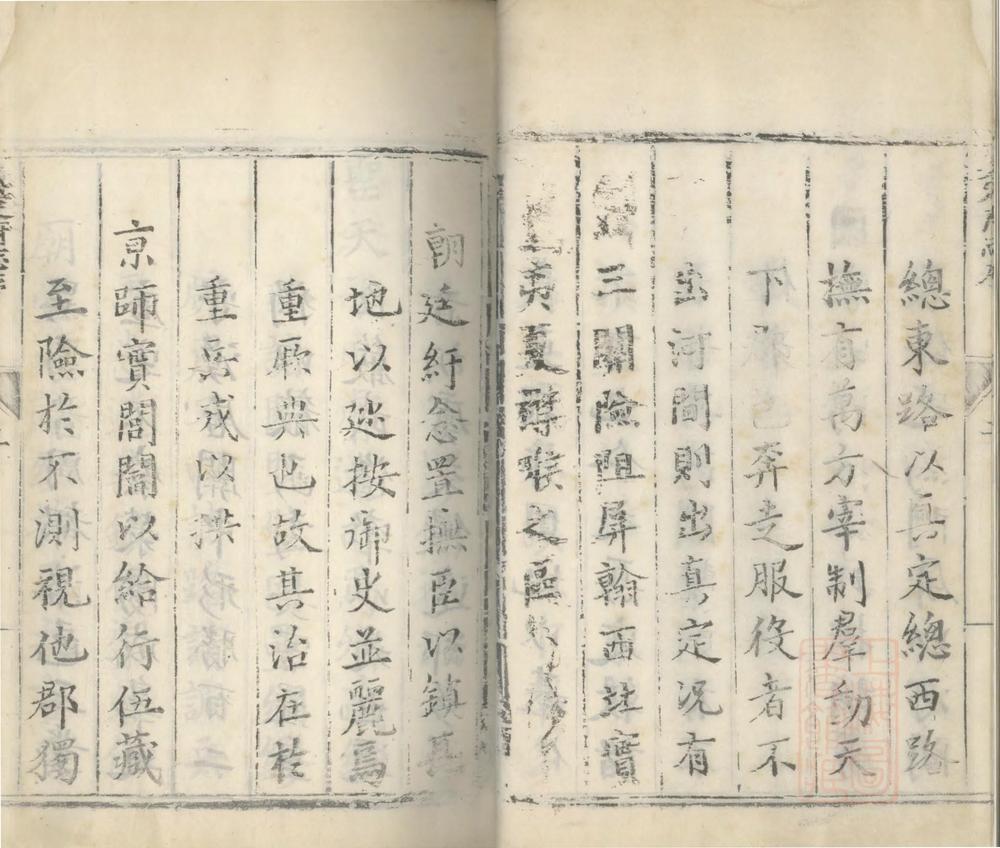 總東路以真定總西路
撫有萬方宰制羣動天
下郡邑奔走服役者不
出河間則出真定況有
三關險阻屏翰西北實
夷夏襟喉之區
朝廷紆念置撫臣以鎮其
地以廵按御史並麗焉
重厥典也故其治在於
重兵戎以拱
京師實閭閻以給行伍藏
至險於不測視他郡獨